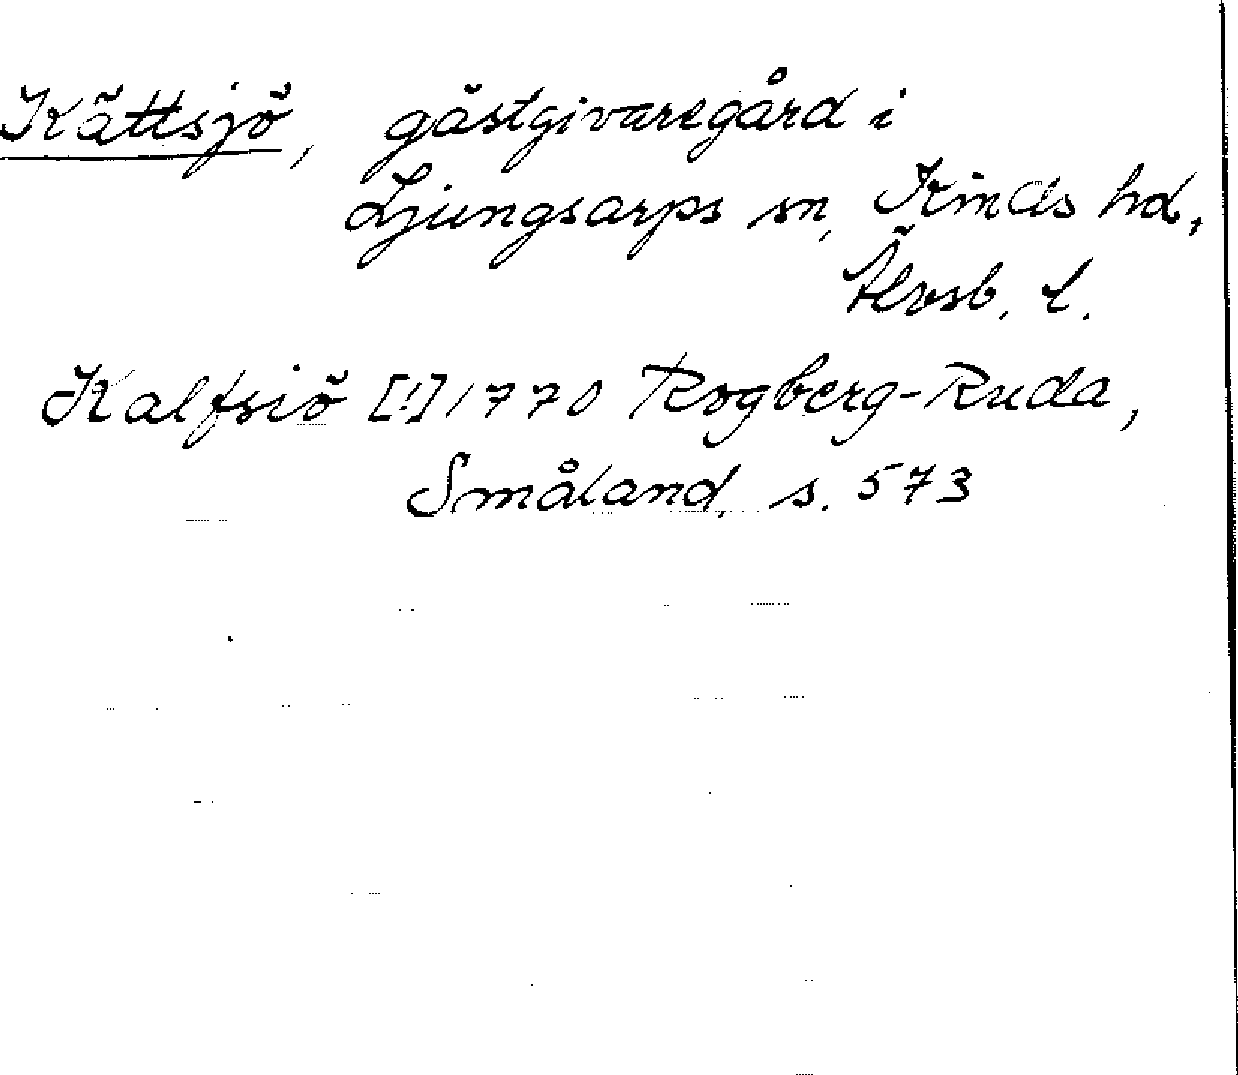 Kättsjö, gästgivaregård i
Ljungsarps sn, Kinds hd,
Älvsb. l.
Kalfsiö [!] 1770 Rogberg-Ruda,
Småland, s. 573